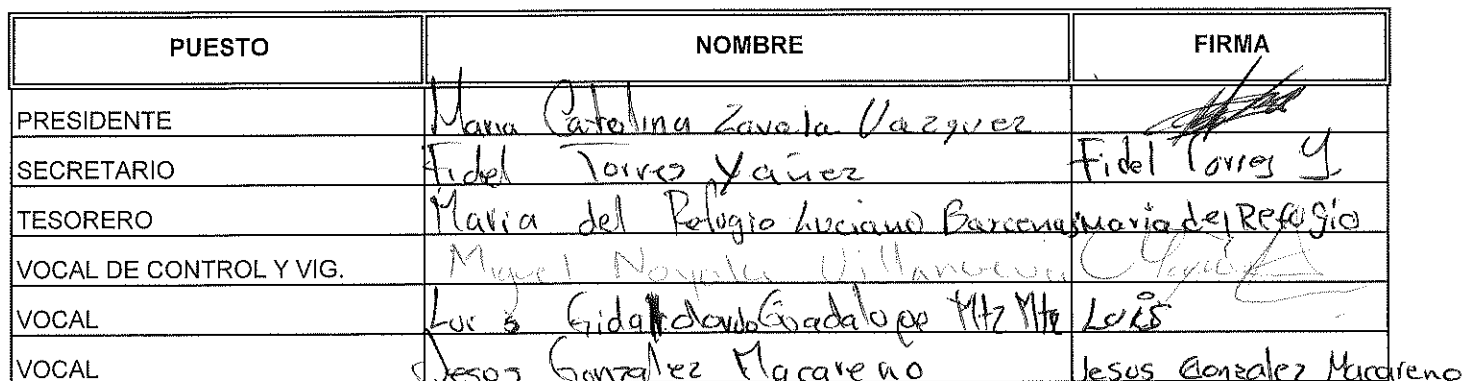 PUESTO NOMBRE FIRMA
PRESIDENTE Maria Catalina Zavala Vazquez
SECRETARIO Fidel Torres Yañez Fidel Torres Y
TESORERO Maria del Refugio Luciano Barcenas maria del Refugio
VOCAL DE CONTROL Y VIG. Miguel Noyola Villanueva
VOCAL Luis Guadalupe Mtz Mtz Luis
VOCAL Jesus Gonzalez Macareno Jesus Gonzalez Macareno